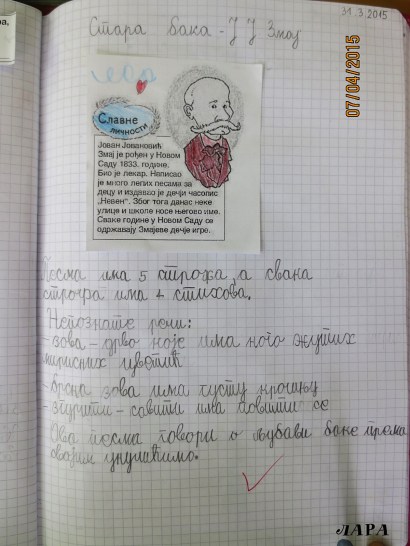 31.3.2015
Стара бака - Ј Ј Змај
07/04/2015
Славне
личности
Јован Јовановић
Змај је рођен у Новом
Саду 1833. године.
Био је лекар. Написао
је много лепих песама за
децу и издавао је дечји часопис
„Невен“. Због тога данас неке
улице и школе носе његово име.
Сваке године у Новом Саду се
одржавају Змајеве дечје игре.
Песма има 5 строфа, а свака
строфа има 4 стихова.
Непознате речи:
- зова - дрво које има жутих
мирисних цветић
- зова има густу крошњу
- згурити - савити има повити се
Ова песма говори о љубави баке према
својим унучићима.
ЛАРА